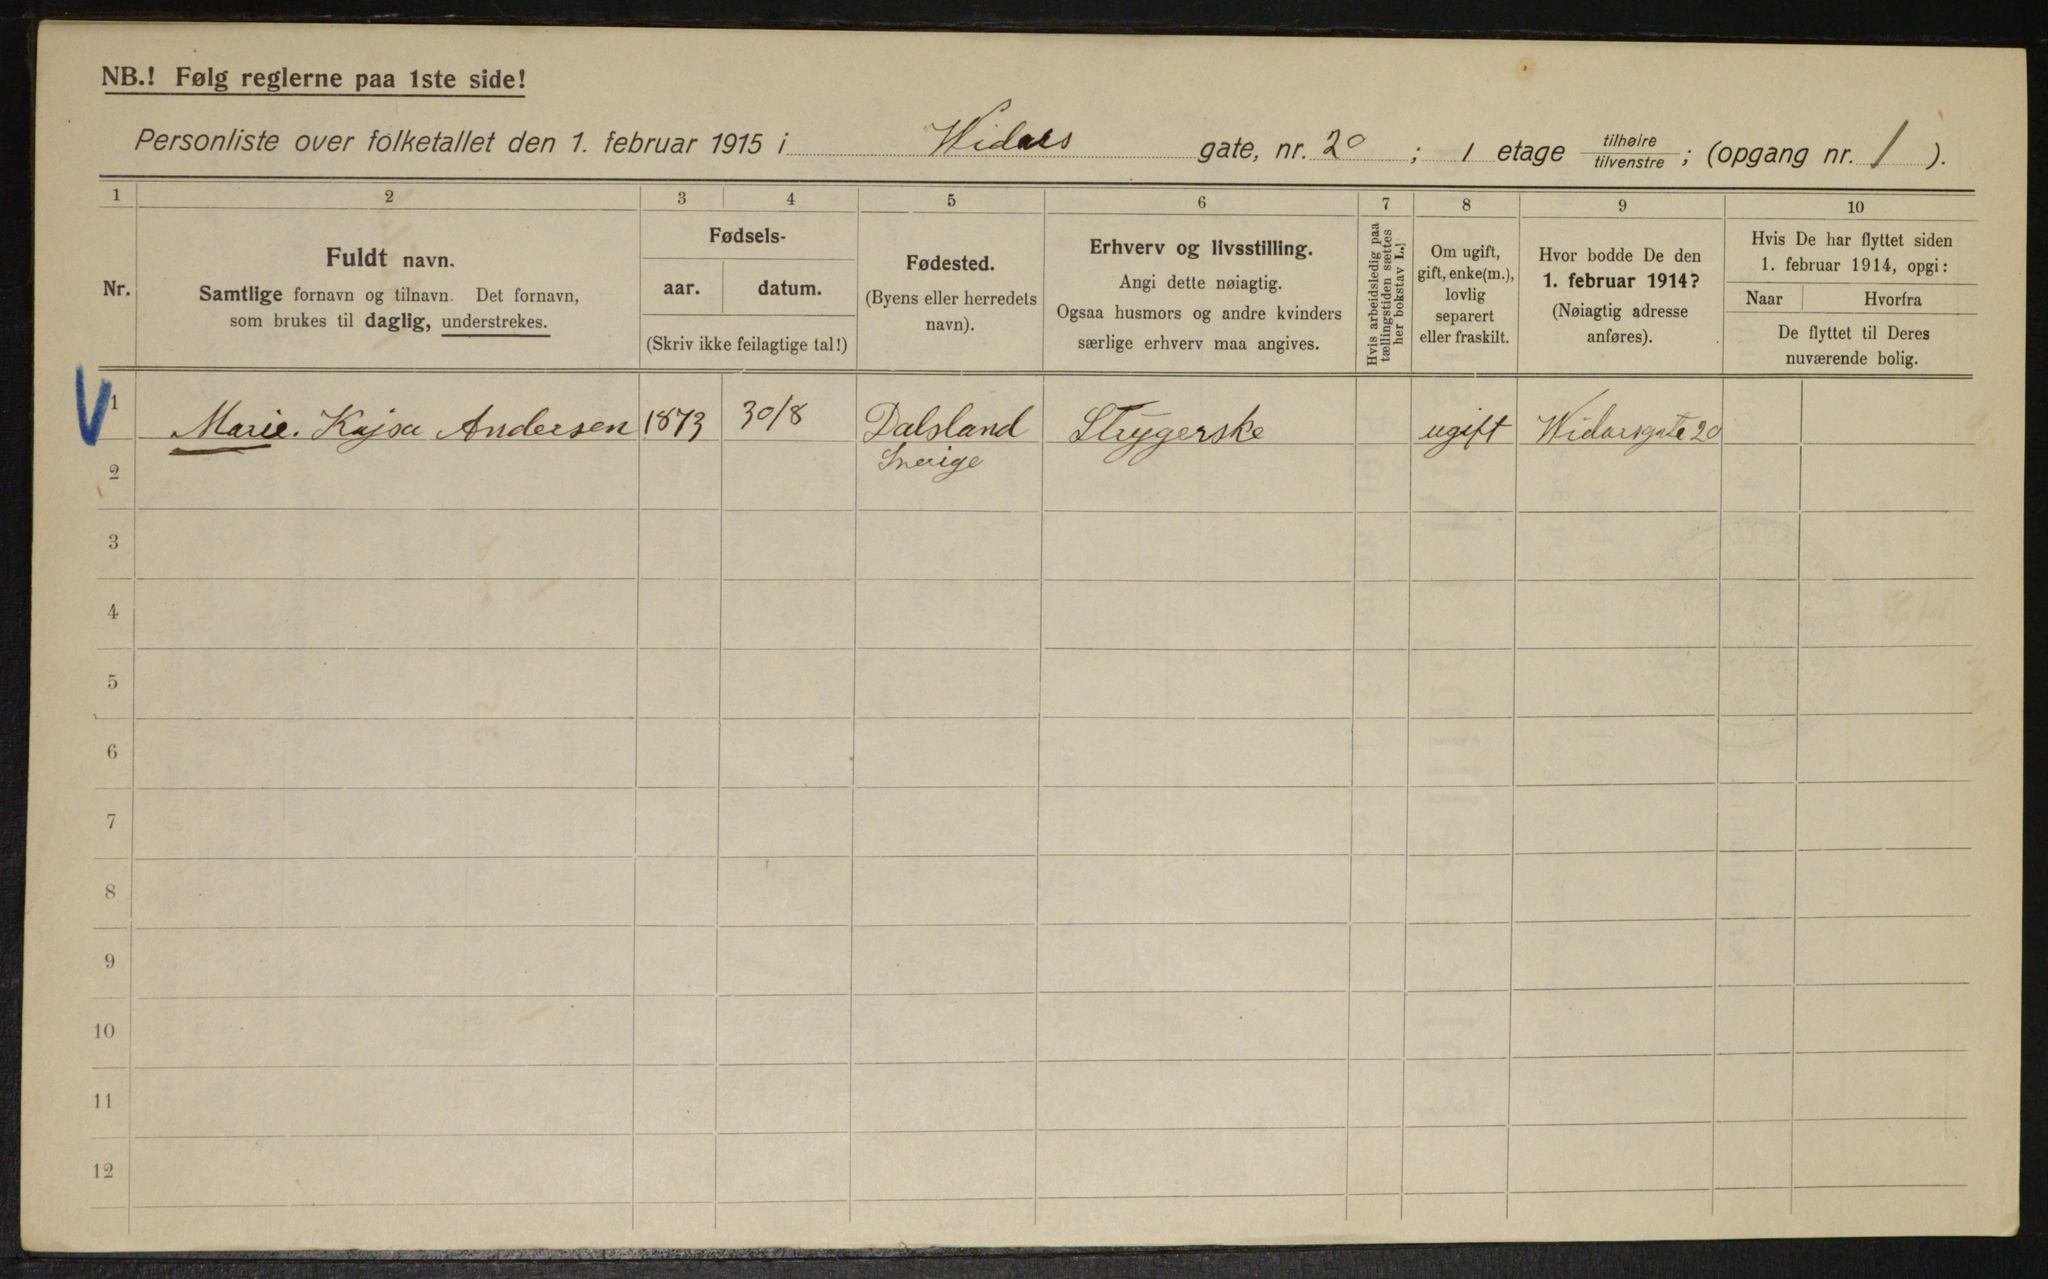 NB.! Følg reglerne paa 1ste side!
Personliste over folketallet den 1. februar 1915 i Widars gate, nr. 20 ; 1 etage tilhøire/tilvenstre ; (opgang nr. 1 ).
1 2 3 4 5 6 7 8 9 10
Nr.
Fuldt navn.
Samtlige fornavn og tilnavn. Det fornavn,
som brukes til daglig, understrekes.
Fødsels-
aar. datum.
(Skriv ikke feilagtige tal!)
Fødested.
(Byens eller herredets
navn).
Erhverv og livsstilling.
Angi dette nøiagtig.
Ogsaa husmors og andre kvinders
særlige erhverv maa angives.
Hvis arbeidsledig paa
tællingstiden sættes
her bokstav L.
Om ugift,
gift, enke(m.),
lovlig
separert
eller fraskilt.
Hvor bodde De den
1. februar 1914?
(Nøiagtig adresse
anføres).
Hvis De har flyttet siden
1. februar 1914, opgi:
Naar Hvorfra
De flyttet til Deres
nuværende bolig.
1 Marie. Kajsa Andersen 1873 30/8 Dalsland Strygerske ugift Widarsgate 20
Sverige
2
3
4
5
6
7
8
9
10
11
12